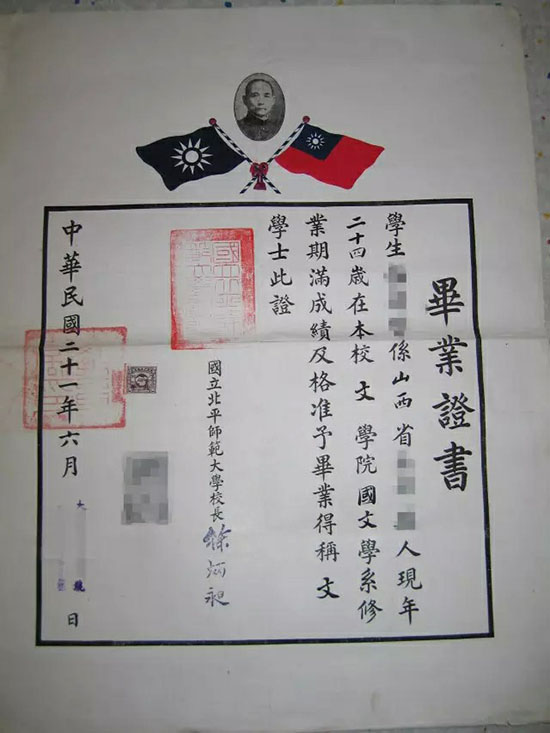 畢業證書
學生 係山西省 人現年
二十四歲在本校 文 學院 國文學系修
業期滿成績及格准予畢業得稱 文
學士此證
國立北平師範大學校長 徐炳昶
中華民國二十一年六月 日